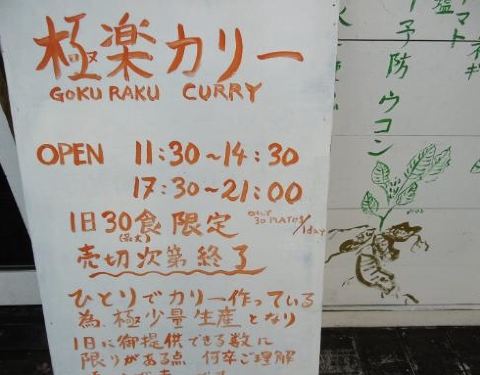 極楽カリー
GOKURAKU CURRY
OPEN 11:30~14:30
17:30~21:00
1日30食限定
(最大)
ONLY 30 PLATES/1day
売切次第終了
ひとりでカリー作っている
為、極少量生産となり
1日に御提供できる数に
限りがある点、何卒ご理解
トマト
塩
ネギ
予防ウコン